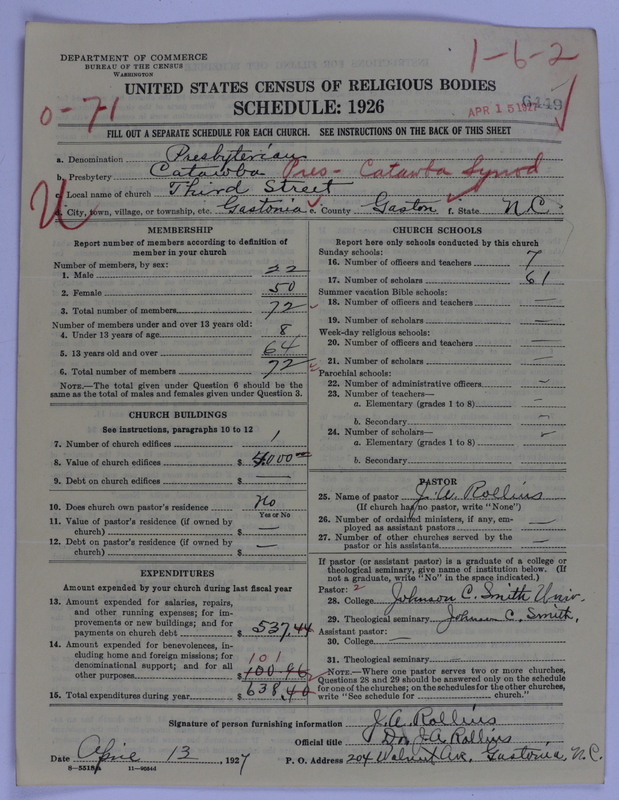 DEPARTMENT OF COMMERCE
BUREAU OF THE CENSUS
WASHINGTON
1-6-2
UNITED STATES CENSUS OF RELIGIOUS BODIES
SCHEDULE: 1926
0-71
APR 15 1927
6449
FILL OUT A SEPARATE SCHEDULE FOR EACH CHURCH. SEE INSTRUCTIONS ON THE BACK OF THIS SHEET
a. Denomination Presbyterian
b. Presbytery Catawba Pres- Catawba Synod
c. Local name of church Third Street
d. City, town, village, or township, etc. Gastonia e. County Gaston f. State N.C.
MEMBERSHIP
Report number of members according to definition of
member in your church
Number of members, by sex:
1. Male 22
2. Female 50
3. Total number of members 72
Number of members under and over 13 years old:
4. Under 13 years of age 8
5. 13 years old and over 64
6. Total number of members 72
NOTE.—The total given under Question 6 should be
same as the total of males and females given under Question 3.
CHURCH BUILDINGS
See instructions, paragraphs 10 to 12
7. Number of church edifices 1
8. Value of church edifices $ 4,000 00
9. Debt on church edifices $ —
10. Does church own pastor's residence? No
Yes or No
11. Value of pastor's residence (if owned by
church) $ —
12. Debt on pastor's residence (if owned by
church) $ —
EXPENDITURES
Amount expended by your church during last fiscal year
13. Amount expended for salaries, repairs,
and other running expenses; for im-
provements or new buildings; and for
payments on church debt $ 537,44
14. Amount expended for benevolences, in-
cluding home and foreign missions; for
denominational support; and for all
other purposes 101
$ 100.96
15. Total expenditures during year $ 638,40
CHURCH SCHOOLS
Report here only schools conducted by this church
Sunday schools:
16. Number of officers and teachers 7
17. Number of scholars 61
Summer vacation Bible schools:
18. Number of officers and teachers —
19. Number of scholars —
Week-day religious schools:
20. Number of officers and teachers —
21. Number of scholars —
Parochial schools:
22. Number of administrative officers —
23. Number of teachers—
a. Elementary (grades 1 to 8) —
b. Secondary
24. Number of scholars—
a. Elementary (grades 1 to 8)
b. Secondary
PASTOR
25. Name of pastor J. A. Rollins
(If church has no pastor, write "None")
26. Number of ordained ministers, if any, em-
ployed as assistant pastors —
27. Number of other churches served by the
pastor or his assistants —
If pastor (or assistant pastor) is a graduate of a college or
theological seminary, give name of institution below. (If
not a graduate, write "No" in the space indicated.)
Pastor: 2
28. College Johnson C. Smith Univ.
29. Theological seminary Johnson C. Smith,
Assistant pastor:
30. College —
31. Theological seminary —
NOTE.—Where one pastor serves two or more churches,
Questions 28 and 29 should be answered only on the schedule
for one of the churches; on the schedules for the other churches,
write "See schedule for church."
Signature of person furnishing information J. A. Rollins
Official title Dr. J. A. Rollins
Date April 13, 1927 P. O. Address 204 Walnut Ave. Gastonia, N.C.
8—5518a 11—9684d